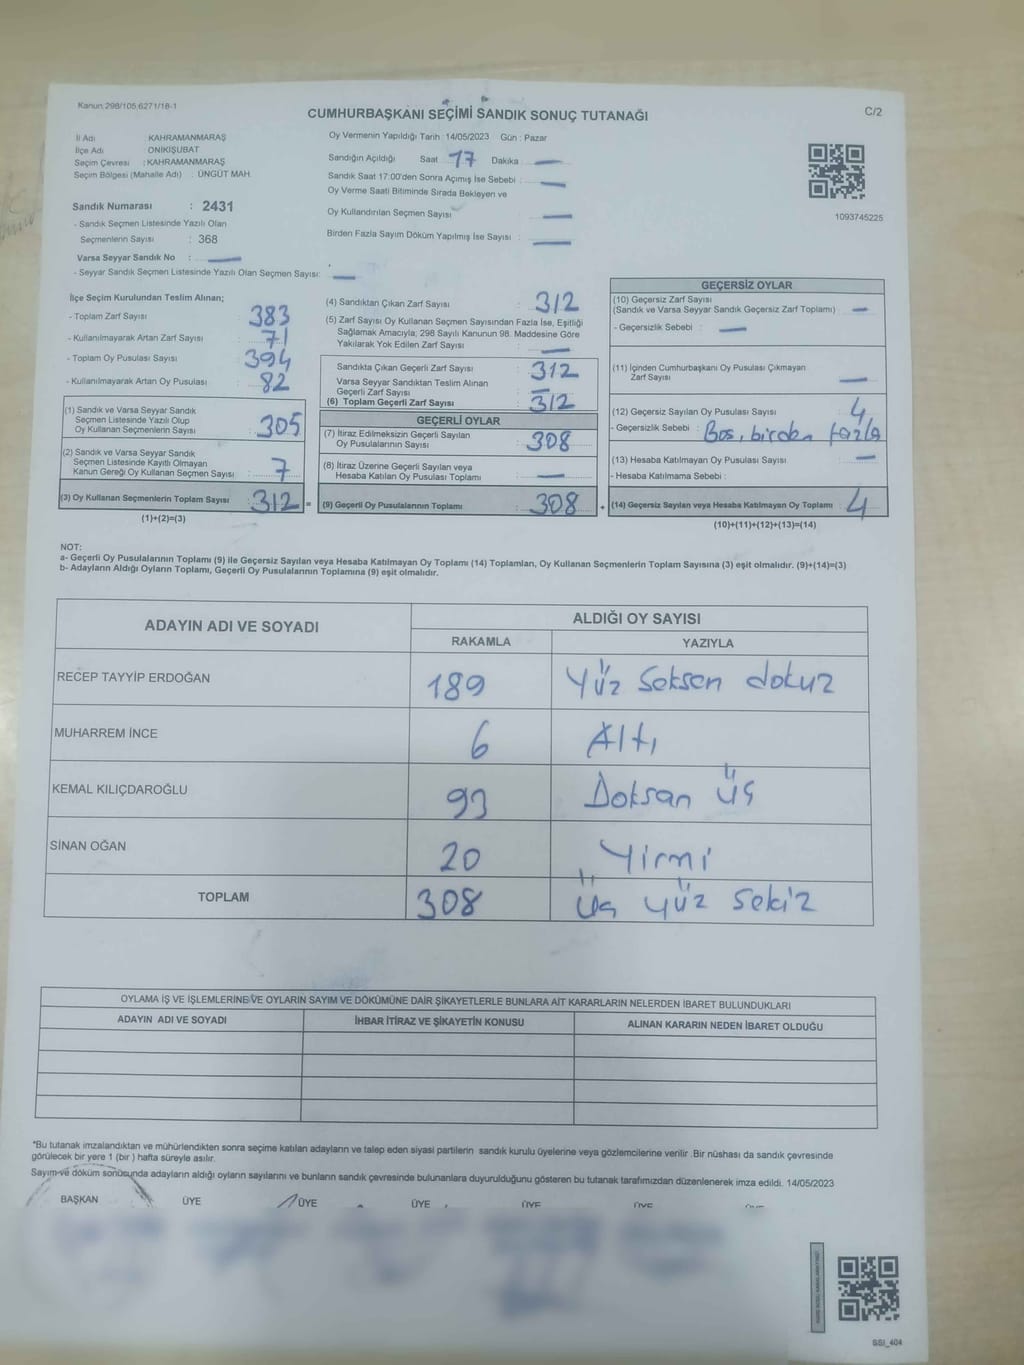 Kanun 298/105,6271/18-1
CUMHURBAŞKANI SEÇİMİ SANDIK SONUÇ TUTANAĞI
C/2
İl Adı KAHRAMANMARAŞ
İlçe Adı ONİKİŞUBAT
Seçim Çevresi : KAHRAMANMARAŞ
Seçim Bölgesi (Mahalle Adı) : ÜNGÜT MAH.
Sandık Numarası : 2431
- Sandık Seçmen Listesinde Yazılı Olan
Seçmenlerin Sayısı : 368
Varsa Seyyar Sandık No : —
- Seyyar Sandık Seçmen Listesinde Yazılı Olan Seçmen Sayısı: —
Oy Vermenin Yapıldığı Tarih : 14/05/2023 Gün : Pazar
Sandığın Açıldığı Saat 17 Dakika : —
Sandık Saat 17:00'den Sonra Açımış İse Sebebi : —
Oy Verme Saati Bitiminde Sırada Bekleyen ve
Oy Kullandırılan Seçmen Sayısı —
Birden Fazla Sayım Döküm Yapılmış İse Sayısı : —
1093745225
İlçe Seçim Kurulundan Teslim Alınan;
- Toplam Zarf Sayısı 383
- Kullanılmayarak Artan Zarf Sayısı : 71
- Toplam Oy Pusulası Sayısı 394
- Kullanılmayarak Artan Oy Pusulası : 82
(1) Sandık ve Varsa Seyyar Sandık
Seçmen Listesinde Yazılı Olup
Oy Kullanan Seçmenlerin Sayısı : 305
(2) Sandık ve Varsa Seyyar Sandık
Seçmen Listesinde Kayıtlı Olmayan
Kanun Gereği Oy Kullanan Seçmen Sayısı : 7
(3) Oy Kullanan Seçmenlerin Toplam Sayısı : 312 =
(1)+(2)=(3)
(4) Sandıktan Çıkan Zarf Sayısı : 312
(5) Zarf Sayısı Oy Kullanan Seçmen Sayısından Fazla İse, Eşitliği
Sağlamak Amacıyla; 298 Sayılı Kanunun 98. Maddesine Göre
Yakılarak Yok Edilen Zarf Sayısı : —
Sandıkta Çıkan Geçerli Zarf Sayısı : 312
Varsa Seyyar Sandıktan Teslim Alınan
Geçerli Zarf Sayısı : —
(6) Toplam Geçerli Zarf Sayısı : 312
GEÇERLİ OYLAR
(7) İtiraz Edilmeksizin Geçerli Sayılan
Oy Pusulalarının Sayısı : 308
(8) İtiraz Üzerine Geçerli Sayılan veya
Hesaba Katılan Oy Pusulası Toplamı : —
(9) Geçerli Oy Pusulalarının Toplamı : 308 +
GEÇERSİZ OYLAR
(10) Geçersiz Zarf Sayısı
(Sandık ve Varsa Seyyar Sandık Geçersiz Zarf Toplamı) : —
- Geçersizlik Sebebi : —
(11) İçinden Cumhurbaşkanı Oy Pusulası Çıkmayan
Zarf Sayısı : —
(12) Geçersiz Sayılan Oy Pusulası Sayısı : 4
- Geçersizlik Sebebi : Boş, birden fazla
(13) Hesaba Katılmayan Oy Pusulası Sayısı : —
- Hesaba Katılmama Sebebi :
(14) Geçersiz Sayılan veya Hesaba Katılmayan Oy Toplamı : 4
(10)+(11)+(12)+(13)=(14)
NOT:
a- Geçerli Oy Pusulalarının Toplamı (9) ile Geçersiz Sayılan veya Hesaba Katılmayan Oy Toplamı (14) Toplamları, Oy Kullanan Seçmenlerin Toplam Sayısına (3) eşit olmalıdır. (9)+(14)=(3)
b- Adayların Aldığı Oyların Toplamı, Geçerli Oy Pusulalarının Toplamına (9) eşit olmalıdır.
ADAYIN ADI VE SOYADI
ALDIĞI OY SAYISI
RAKAMLA YAZIYLA
RECEP TAYYİP ERDOĞAN 189 Yüz Seksen dokuz
MUHARREM İNCE 6 Altı
KEMAL KILIÇDAROĞLU 93 Doksan üç
SİNAN OĞAN 20 Yirmi
TOPLAM 308 üç yüz sekiz
OYLAMA İŞ VE İŞLEMLERİNE VE OYLARIN SAYIM VE DÖKÜMÜNE DAİR ŞİKAYETLERLE BUNLARA AİT KARARLARIN NELERDEN İBARET BULUNDUKLARI
ADAYIN ADI VE SOYADI İHBAR İTİRAZ VE ŞİKAYETİN KONUSU ALINAN KARARIN NEDEN İBARET OLDUĞU
*Bu tutanak imzalandıktan ve mühürlendikten sonra seçime katılan adayların ve talep eden siyasi partilerin sandık kurulu üyelerine veya gözlemcilerine verilir .Bir nüshası da sandık çevresinde
görülecek bir yere 1 (bir ) hafta süreyle asılır.
Sayım ve döküm sonucunda adayların aldığı oyların sayılarını ve bunların sandık çevresinde bulunanlara duyurulduğunu gösteren bu tutanak tarafımızdan düzenlenerek imza edildi. 14/05/2023
BAŞKAN ÜYE ÜYE ÜYE ÜYE ÜYE
SSI_404